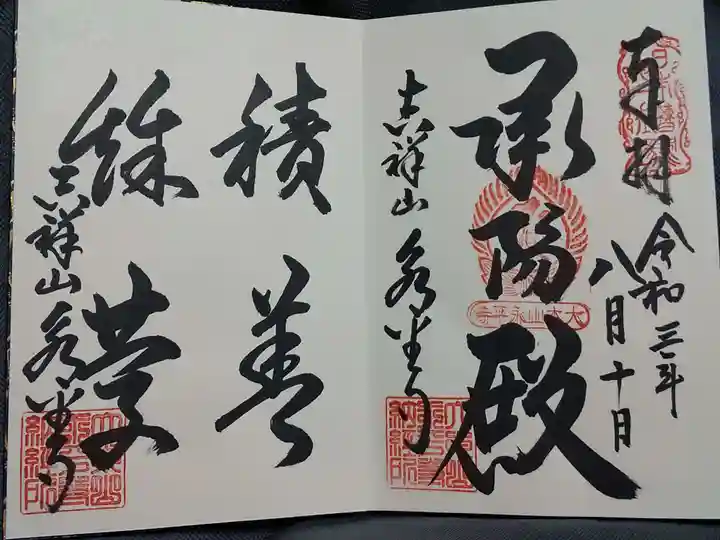 奉拝
令和三年
八月十日
承陽殿
大本山永平寺
吉祥山 永平寺
積善
餘慶
吉祥山 永平寺